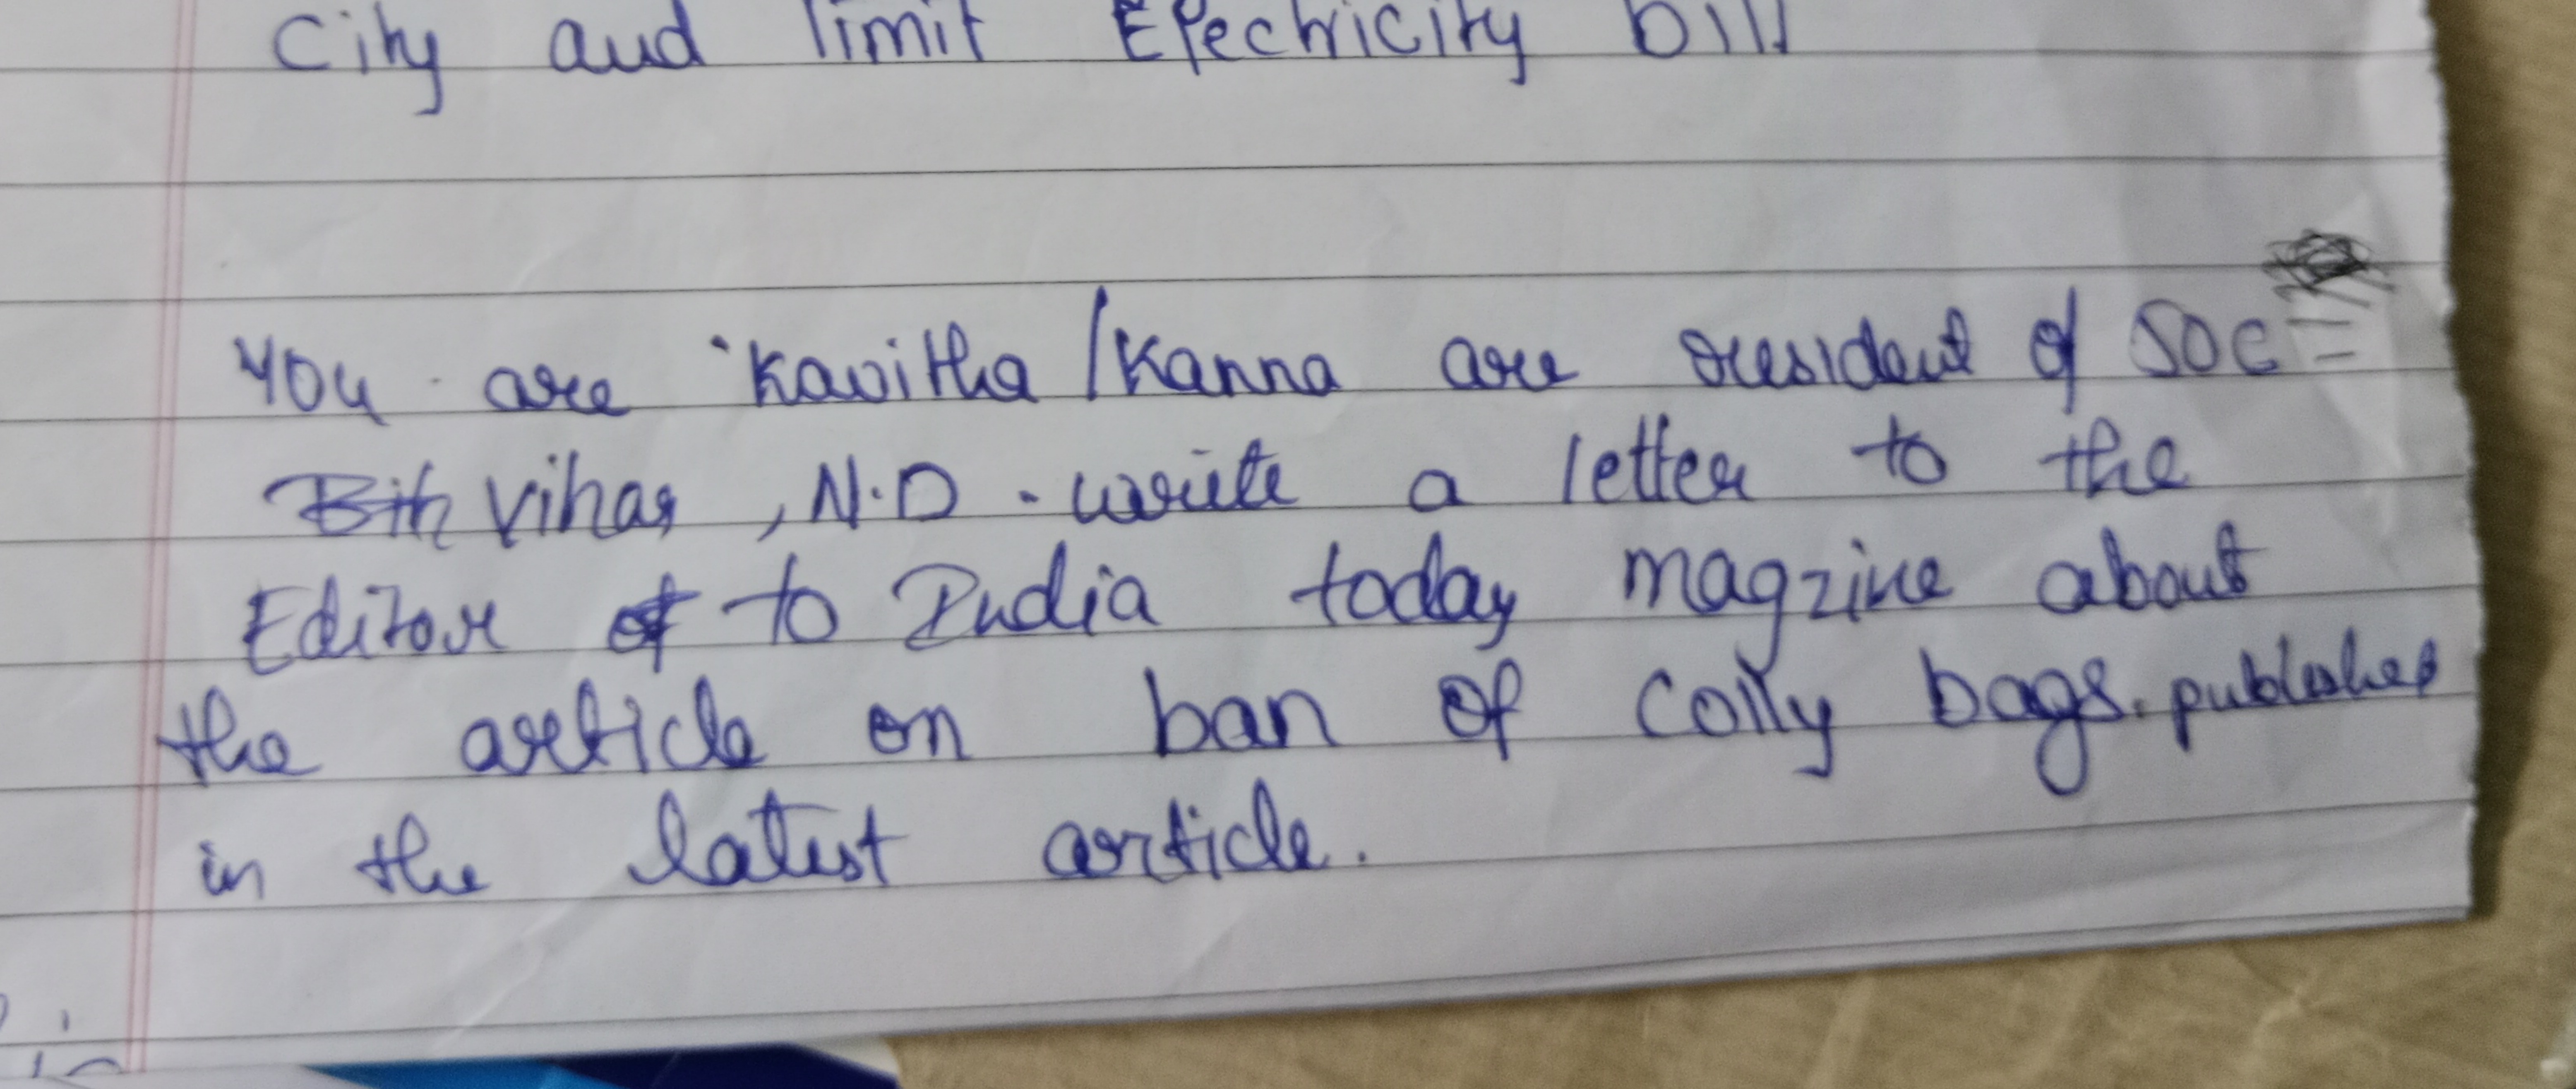 City and limit Electricity bill
You are Kavitha/Kanna are resident of SOC
Vihar, N.D. write a letter to the
Editor to India today magzine about
the article on ban of Colly bags. published
in the latest article.